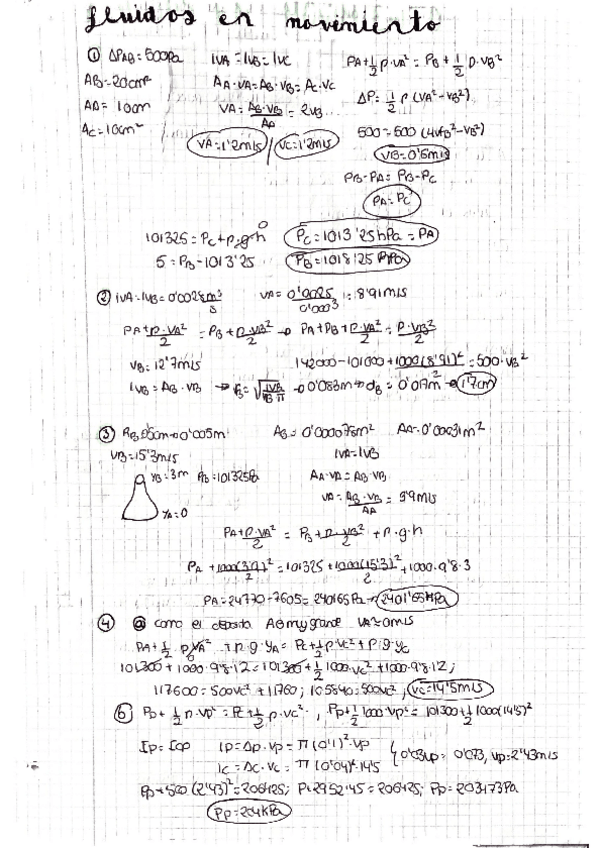 fluidos en movimiento
① ΔPAB = 500Pa   IVA = IVB = IVC   PA + 1/2 ρ·VA² = PB + 1/2 ρ·VB²
AB = 20cm²   AA·VA = AB·VB = AC·VC
AA = 10cm   VA = AB·VB/AA = 2VB   ΔP = 1/2 ρ (VA² - VB²)
AC = 10cm²   500 = 500 (4VB² - VB²)
VA = 1'2m/s / VC = 1'2m/s   VB = 0'6m/s
PB - PA = PB - PC
PA = PC
101325 = PC + ρ·g·h 0   PC = 1013'25hPa = PA
5 = PB - 1013'25   PB = 1018'25 hPa
② IVA = IVB = 0'0028 m³/s   VA = 0'0025/0'0003 = 8'91m/s
PA + ρ·VA²/2 = PB + ρ·VB²/2 → PA + PB + ρ·VA²/2 = ρ·VB²/2
VB = 12'7m/s   142000 - 101000 + 1000(8'91)²/2 = 500·VB²
IVB = AB·VB → rB = √IVB/VB·π → 0'0083m → dB = 0'017m → 1'7cm
③ RB = 0'5cm → 0'005m   AB = 0'000078m²   AA = 0'00031m²
VB = 15'3m/s   IVA = IVB
YB = 3m PB = 101325Pa   AA·VA = AB·VB
YA = 0   VA = AB·VB/AA = 3'9m/s
PA + ρ·VA²/2 = PB + ρ·VB²/2 + ρ·g·h
PA + 1000(3'9)²/2 = 101325 + 1000(15'3)²/2 + 1000·9'8·3
PA = 247770 - 7605 = 240165Pa → 2401'65hPa
④ ⓐ como el deposito A es muy grande VA ≈ 0m/s
PA + 1/2 ρ·VA² 0 + ρ·g·YA = PC + 1/2 ρ·VC² + ρ·g·YC
101300 + 1000·9'8·12 = 101300 + 1/2 1000·VC² + 1000·9'8·1'2;
117600 = 500VC² + 11760; 105840 = 500VC²; VC = 14'5m/s
ⓑ PD + 1/2 ρ·VP² = PC + 1/2 ρ·VC²; PP + 1/2 1000·VP² = 101300 + 1/2 1000(14'5)²
IP = AP·VP = π(0'1)²·VP
IC = AC·VC = π(0'04)²·14'5   { 0'03VP = 0'073, VP = 2'43m/s
PP + 500(2'43)² = 206425; P + 2952'45 = 206425; PP = 203473Pa
PP = 204kPa